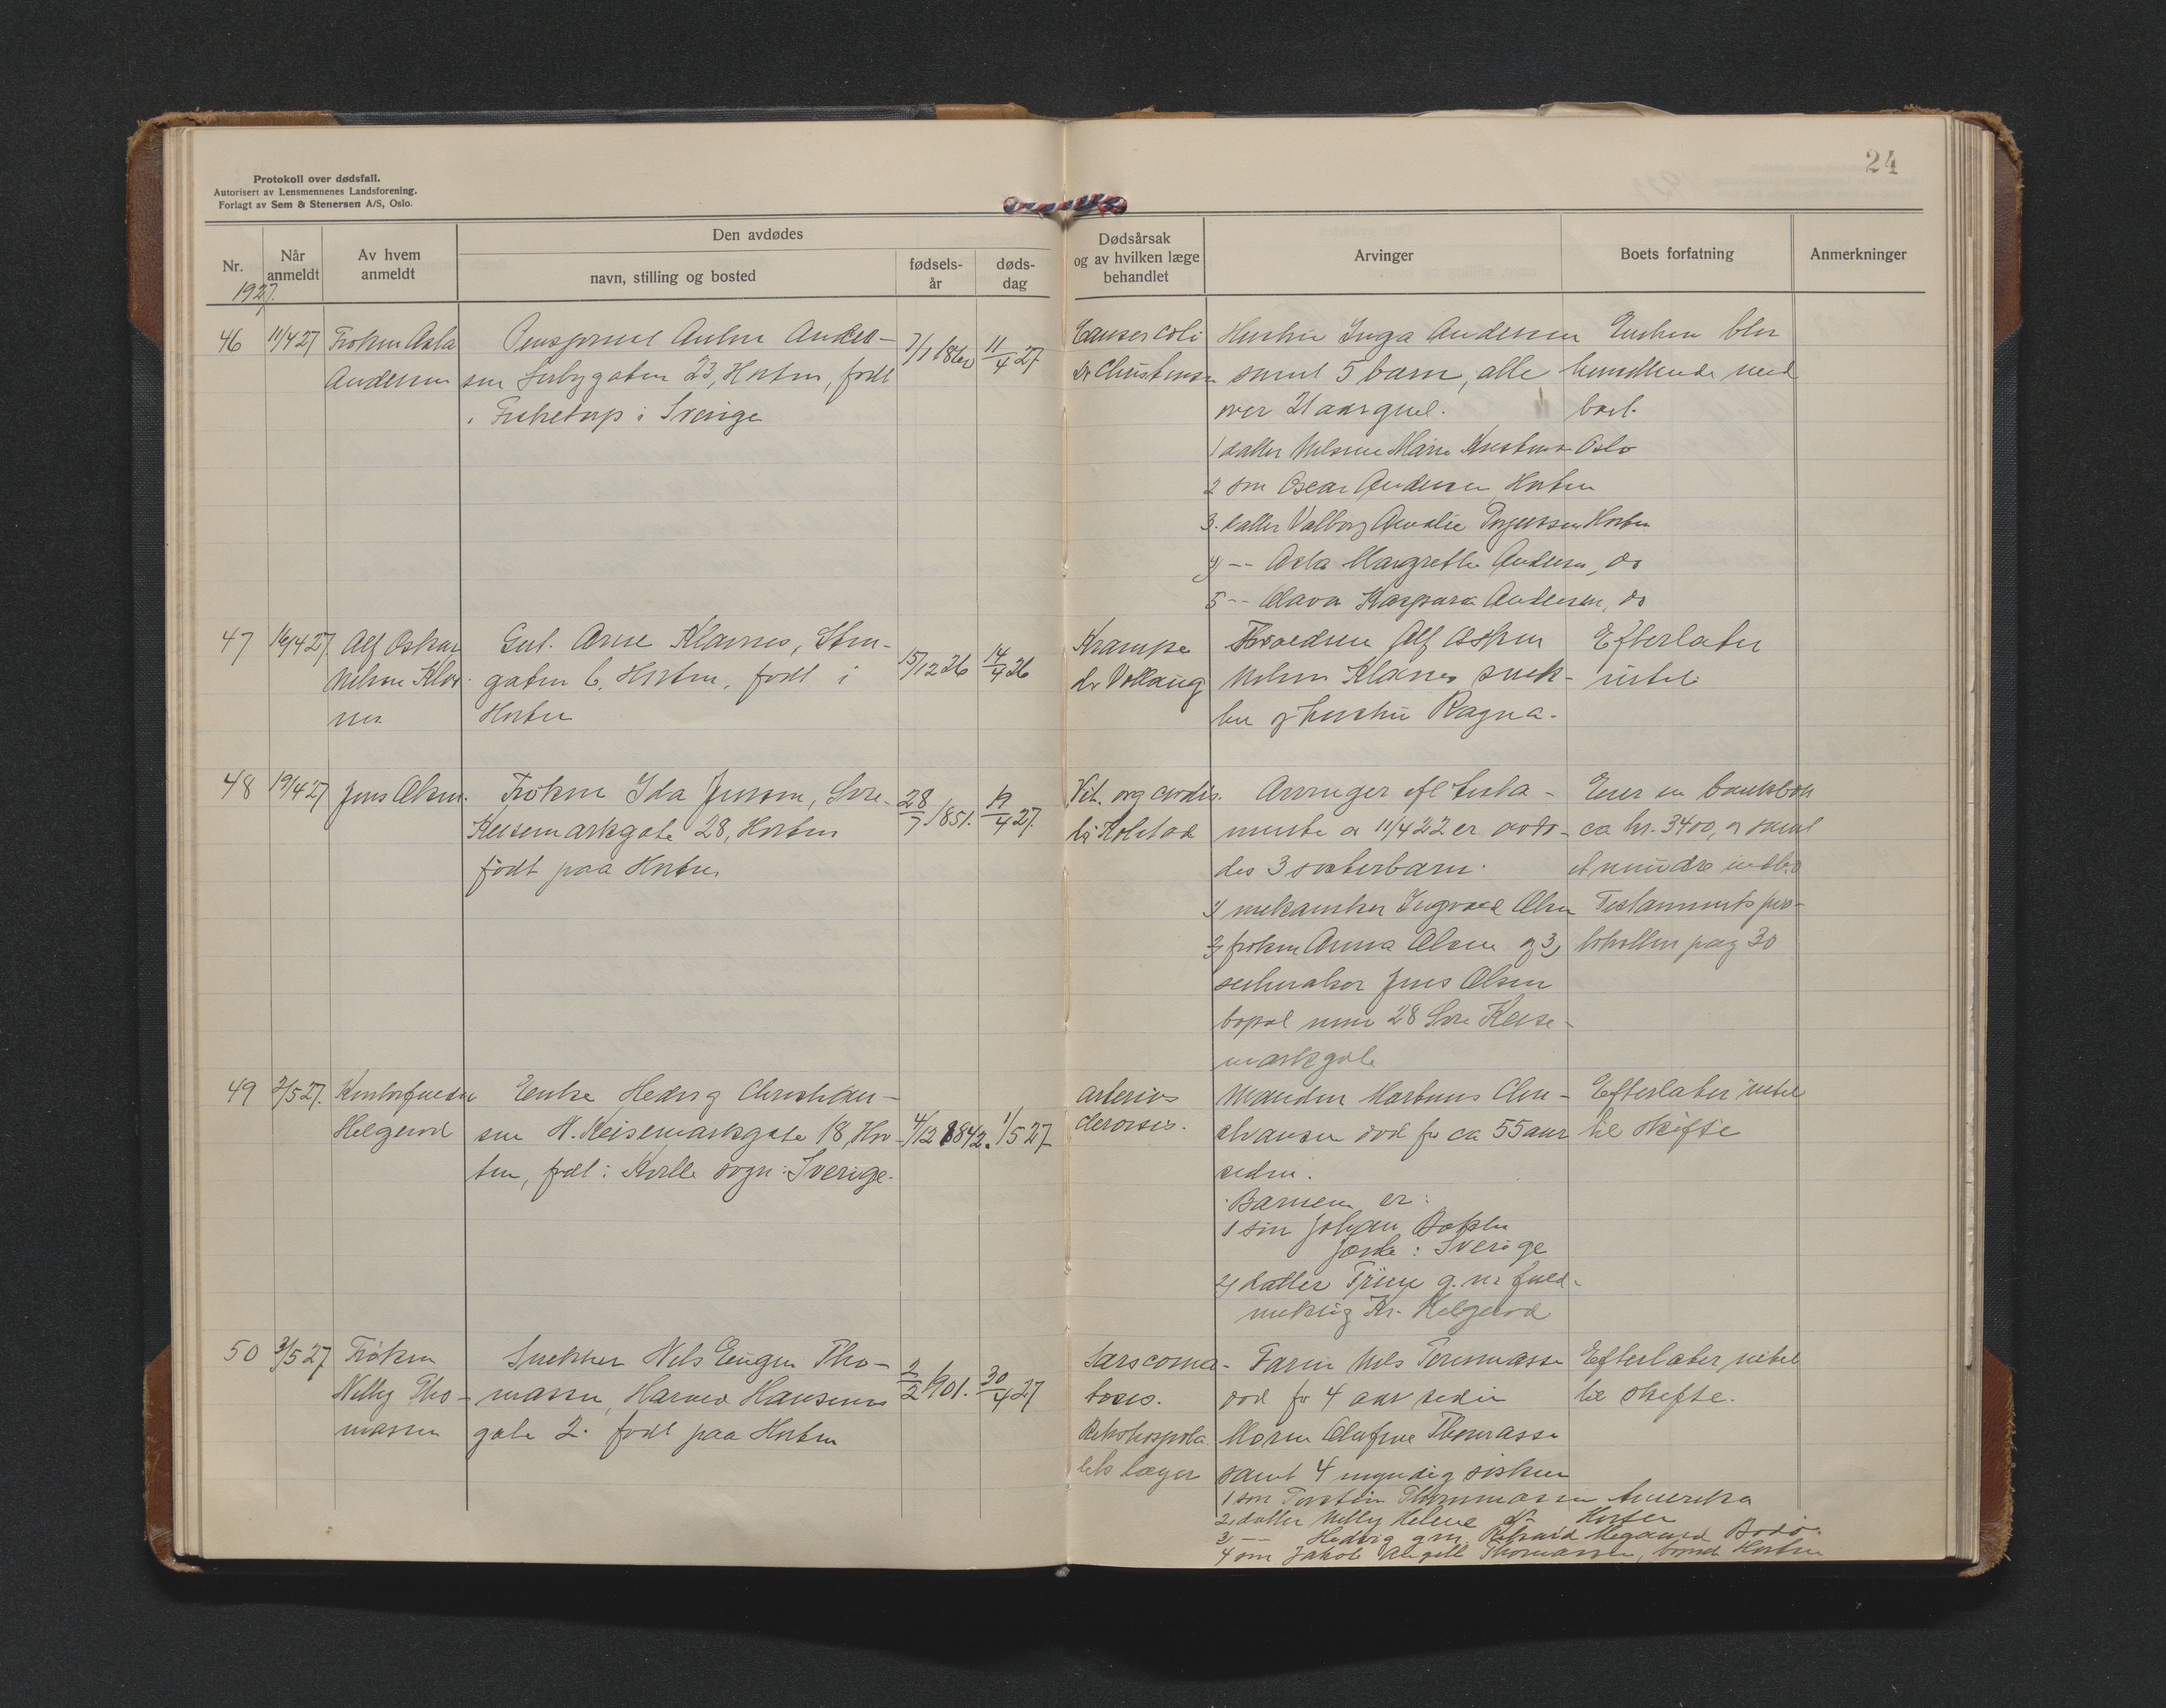 24
Protokoll over dødsfall.
Autorisert av Lensmennenes Landsforening.
Forlagt av Sem & Stenersen A/S, Oslo.
Nr.
Når anmeldt
Av hvem anmeldt
Den avdødes
navn, stilling og bosted
fødsels-år
døds-dag
Dødsårsak og av hvilken læge behandlet
Arvinger
Boets forfatning
Anmerkninger
1927.
46 11/4 27 Frøken Asla
Andersen
Ander-
sen 23, Horten, født
i Sverige
11/4 27
Cancer coli
Dr Christensen
Hustru Inga Andersen
samt 5 barn, alle
over 21 aar gml.
1 datter Marie Oslo
2 søn Oscar Andersen Horten
3. datter Valborg Horten
4) -- Asla Margrethe Andersen, do
5 -- Olava Andersen, do
Enken blir
hensittende med
boet.
47 16/4 27 Alf Oskar
Nilsen Klav-
nes
Gut. Arne Klavnes, Sten-
gaten 6, Horten, født i
Horten
15/12 26
14/4 26
Krampe
dr Vollaug
Forældrene Alf Oskar
Nilsen Klavnes snek-
ker og hustru Ragna.
Efterlater
intet
48 19/4 27 Jens Olsen.
Frøken Ida Jensen, Søre-
Keisemarkgate 28, Horten
født paa Horten
28/7 1851.
19/4 27.
Vit. org cordis.
dr Kolstad
Arvinger efl testa-
mente a 11/4 22 er avdø-
des 3 søsterbarn.
1) mekaniker Ingvald Olsen
2) frøken Anna Olsen og 3)
Jens Olsen
bopæl 28 Søre Keise-
markgate
Eier en bankbok
ca kr. 3400, og samt
et mindre indbo
Testamentspro-
tokollen pag 30
49 2/5 27. Kontorfuldm
Helgerød
Enke Hedvig Christian-
sen N. Keisemarkgate 18, Hor-
ten, født i sogn i Sverige.
4/12 1842.
1/5 27
Arterios
clerosis.
Manden Martinus Chri-
stiansen død for ca 55 aar
siden.
Barnen er:
1 søn Johan
i Sverige
2) datter g. m. fuld-
mektig Kr. Helgerød
Efterlater intet
til skifte
50 3/5 27 Frøken
Nelly Tho-
massen
Snekker Nils Eugen Tho-
massen, Harald Hansens
gate 2. født paa Horten
2/2 1901.
30/4 27
Sarscoma-
tosis.
Rikshospita
lets læger
Faren Nils Thommassen
død for 4 aar siden
Moren Olufine Thomassen
samt 4 myndig sisken
1 søn Torstein Thommassen Amerika
2, datter Nelly Helene do Horten
3) -- Hedvig g m. Bodø.
4 søn Jakob Thomassen, Horten
Efterlater intet
til skifte.